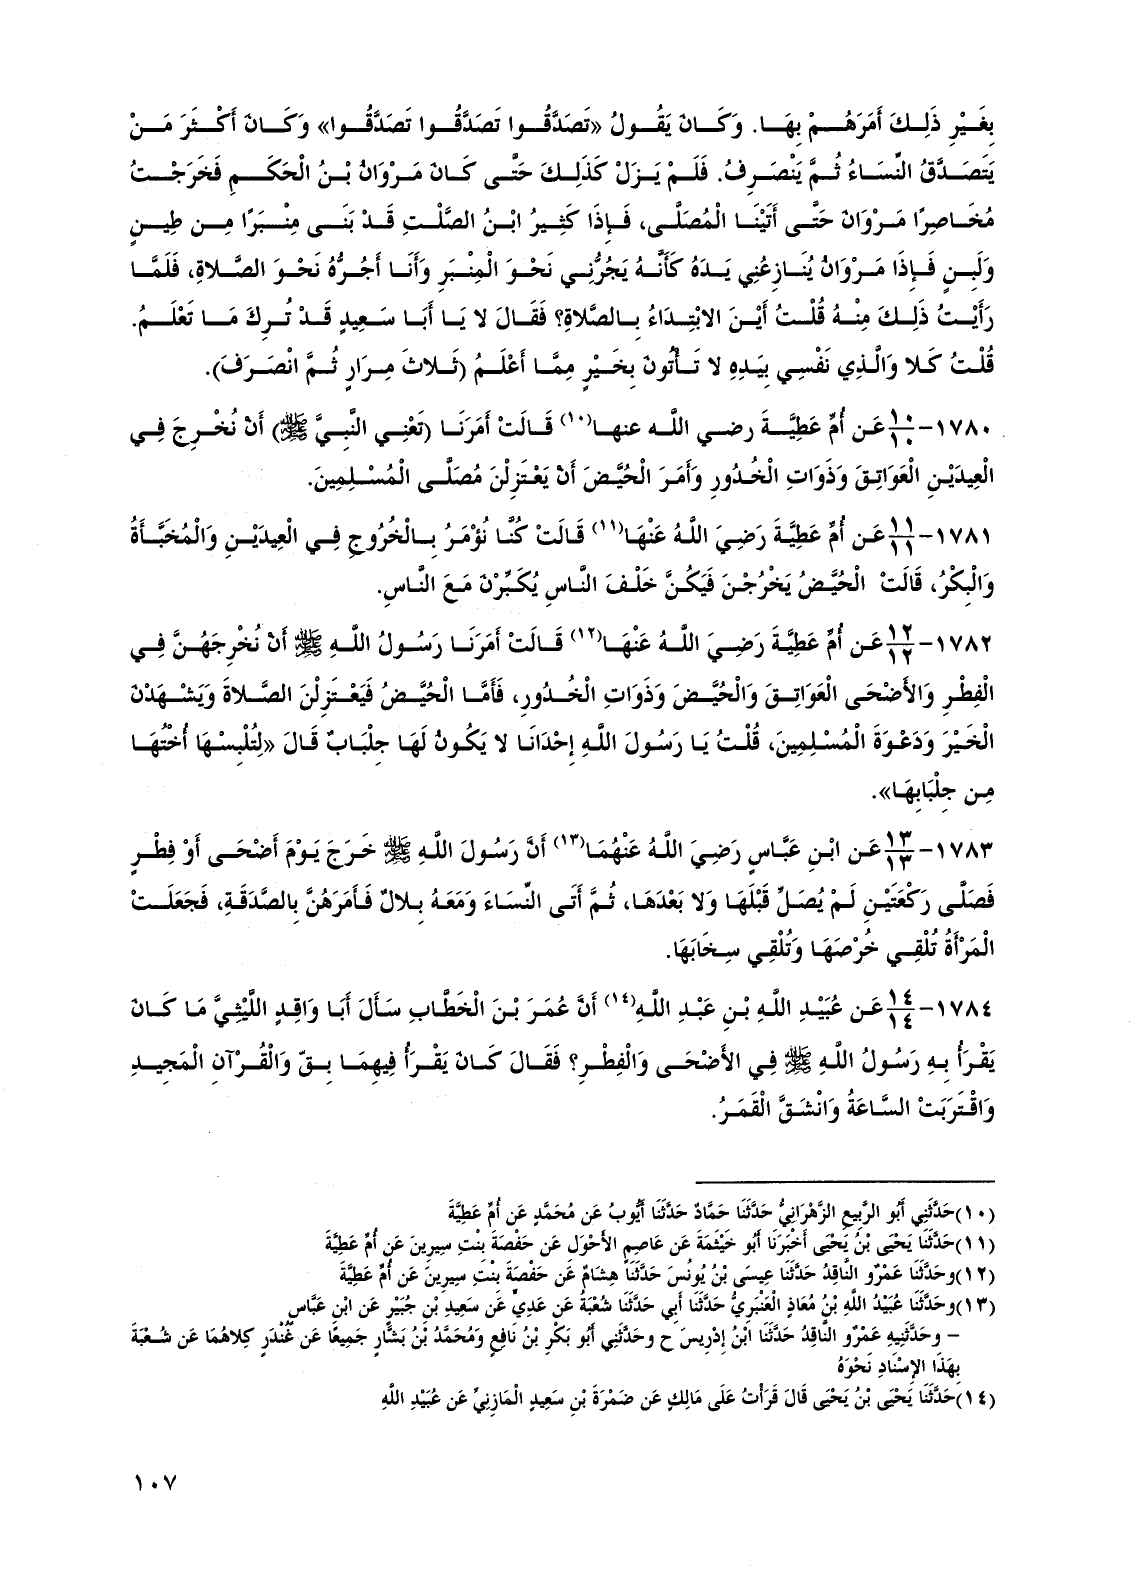 بِغَيْرِ ذَلِكَ أَمَرَهُمْ بِهَا. وَكَانَ يَقُولُ «تَصَدَّقُوا تَصَدَّقُوا تَصَدَّقُوا» وَكَانَ أَكْثَرَ مَنْ
يَتَصَدَّقُ النِّسَاءُ ثُمَّ يَنْصَرِفُ. فَلَمْ يَزَلْ كَذَلِكَ حَتَّى كَانَ مَرْوَانُ بْنُ الْحَكَمِ فَخَرَجْتُ
مُخَاصِرًا مَرْوَانَ حَتَّى أَتَيْنَا الْمُصَلَّى، فَإِذَا كَثِيرُ ابْنُ الصَّلْتِ قَدْ بَنَى مِنْبَرًا مِن طِينٍ
وَلَبِنٍ فَإِذَا مَرْوَانُ يُنَازِعُنِي يَدَهُ كَأَنَّهُ يَجُرُّنِي نَحْوَ الْمِنْبَرِ وَأَنَا أَجُرُّهُ نَحْوَ الصَّلاةِ، فَلَمَّا
رَأَيْتُ ذَلِكَ مِنْهُ قُلْتُ أَيْنَ الابْتِدَاءُ بِالصَّلاةِ؟ فَقَالَ لا يَا أَبَا سَعِيدٍ قَدْ تُرِكَ مَا تَعْلَمُ.
قُلْتُ كَلا وَالَّذِي نَفْسِي بِيَدِهِ لا تَأْتُونَ بِخَيْرٍ مِمَّا أَعْلَمُ (ثَلاثَ مِرَارٍ ثُمَّ انْصَرَفَ).
١٧٨٠- ١٠/١٠ عَن أُمِّ عَطِيَّةَ رضي اللَّه عنها(١٠) قَالَتْ أَمَرَنَا (تَعْنِي النَّبِيَّ ﷺ) أَنْ نُخْرِجَ فِي
الْعِيدَيْنِ الْعَوَاتِقَ وَذَوَاتِ الْخُدُورِ وَأَمَرَ الْحُيَّضَ أَنْ يَعْتَزِلْنَ مُصَلَّى الْمُسْلِمِينَ.
١٧٨١- ١١/١١ عَن أُمِّ عَطِيَّةَ رَضِيَ اللَّهُ عَنْهَا(١١) قَالَتْ كُنَّا نُؤْمَرُ بِالْخُرُوجِ فِي الْعِيدَيْنِ وَالْمُخَبَّأَةُ
وَالْبِكْرُ، قَالَتْ الْحُيَّضُ يَخْرُجْنَ فَيَكُنَّ خَلْفَ النَّاسِ يُكَبِّرْنَ مَعَ النَّاسِ.
١٧٨٢- ١٢/١٢ عَن أُمِّ عَطِيَّةَ رَضِيَ اللَّهُ عَنْهَا(١٢) قَالَتْ أَمَرَنَا رَسُولُ اللَّهِ ﷺ أَنْ نُخْرِجَهُنَّ فِي
الْفِطْرِ وَالأَضْحَى الْعَوَاتِقَ وَالْحُيَّضَ وَذَوَاتِ الْخُدُورِ، فَأَمَّا الْحُيَّضُ فَيَعْتَزِلْنَ الصَّلاةَ وَيَشْهَدْنَ
الْخَيْرَ وَدَعْوَةَ الْمُسْلِمِينَ، قُلْتُ يَا رَسُولَ اللَّهِ إِحْدَانَا لا يَكُونُ لَهَا جِلْبَابٌ قَالَ «لِتُلْبِسْهَا أُخْتُهَا
مِن جِلْبَابِهَا».
١٧٨٣- ١٣/١٣ عَن ابْنِ عَبَّاسٍ رَضِيَ اللَّهُ عَنْهُمَا(١٣) أَنَّ رَسُولَ اللَّهِ ﷺ خَرَجَ يَوْمَ أَضْحَى أَوْ فِطْرٍ
فَصَلَّى رَكْعَتَيْنِ لَمْ يُصَلِّ قَبْلَهَا وَلا بَعْدَهَا، ثُمَّ أَتَى النِّسَاءَ وَمَعَهُ بِلالٌ فَأَمَرَهُنَّ بِالصَّدَقَةِ، فَجَعَلَتْ
الْمَرْأَةُ تُلْقِي خُرْصَهَا وَتُلْقِي سِخَابَهَا.
١٧٨٤- ١٤/١٤ عَن عُبَيْدِ اللَّهِ بْنِ عَبْدِ اللَّهِ(١٤) أَنَّ عُمَرَ بْنَ الْخَطَّابِ سَأَلَ أَبَا وَاقِدٍ اللَّيْثِيَّ مَا كَانَ
يَقْرَأُ بِهِ رَسُولُ اللَّهِ ﷺ فِي الأَضْحَى وَالْفِطْرِ؟ فَقَالَ كَانَ يَقْرَأُ فِيهِمَا بِقّ وَالْقُرْآنِ الْمَجِيدِ
وَاقْتَرَبَتْ السَّاعَةُ وَانْشَقَّ الْقَمَرُ.
(١٠)حَدَّثَنِي أَبُو الرَّبِيعِ الزَّهْرَانِيُّ حَدَّثَنَا حَمَّادٌ حَدَّثَنَا أَيُّوبُ عَن مُحَمَّدٍ عَن أُمِّ عَطِيَّةَ
(١١)حَدَّثَنَا يَحْيَى بْنُ يَحْيَى أَخْبَرَنَا أَبُو خَيْثَمَةَ عَن عَاصِمٍ الأَحْوَلِ عَن حَفْصَةَ بِنْتِ سِيرِينَ عَن أُمِّ عَطِيَّةَ
(١٢)وحَدَّثَنَا عَمْرٌو النَّاقِدُ حَدَّثَنَا عِيسَى بْنُ يُونُسَ حَدَّثَنَا هِشَامٌ عَن حَفْصَةَ بِنْتِ سِيرِينَ عَن أُمِّ عَطِيَّةَ
(١٣)وحَدَّثَنَا عُبَيْدُ اللَّهِ بْنُ مُعَاذٍ الْعَنْبَرِيُّ حَدَّثَنَا أَبِي حَدَّثَنَا شُعْبَةُ عَن عَدِيٍّ عَن سَعِيدِ بْنِ جُبَيْرٍ عَن ابْنِ عَبَّاسٍ
– وحَدَّثَنِيهِ عَمْرٌو النَّاقِدُ حَدَّثَنَا ابْنُ إِدْرِيسَ ح وحَدَّثَنِي أَبُو بَكْرِ بْنُ نَافِعٍ وَمُحَمَّدُ بْنُ بَشَّارٍ جَمِيعًا عَن غُنْدَرٍ كِلاهُمَا عَن شُعْبَةَ
بِهَذَا الإِسْنَادِ نَحْوَهُ
(١٤)حَدَّثَنَا يَحْيَى بْنُ يَحْيَى قَالَ قَرَأْتُ عَلَى مَالِكٍ عَن ضَمْرَةَ بْنِ سَعِيدٍ الْمَازِنِيِّ عَن عُبَيْدِ اللَّهِ
١٠٧